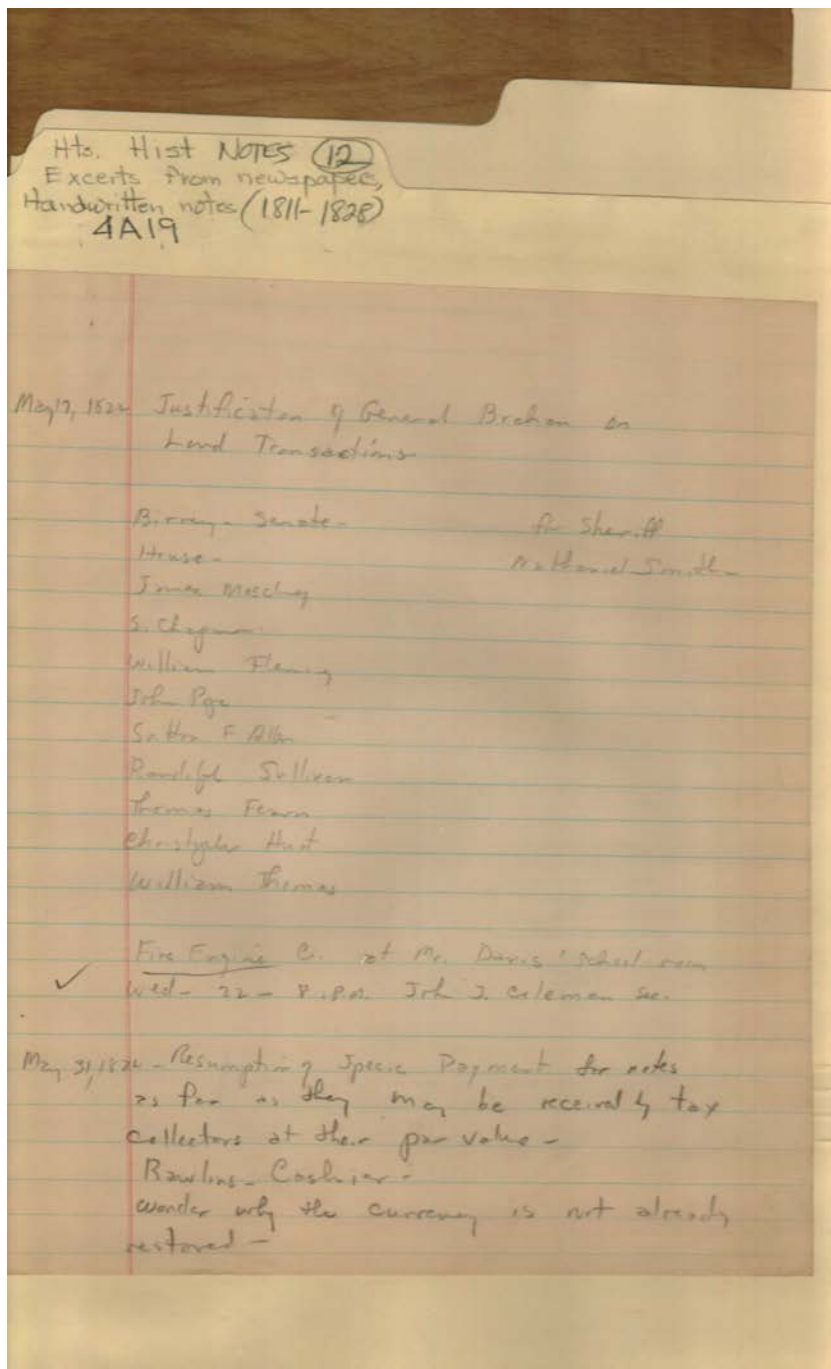 Hts. Hist NOTES 12
Excerts from newspapers,
Handwritten notes (1811-1828)
4A19
May 17, 182 Justification of General Brahan on
Land Transactions
Birney - Senate - for Sheriff
House - Nathaniel Smith -
James Moseley
S. Chapman
William Fleming
John Pope
F Allen
Randolph Sullivan
Thomas Fearn
Christopher Hunt
William Thomas
Fire Engine Co. at Mr. Davis' school room
✓ Wed - 22 - P.M. John J. Coleman Sec.
May 31, 182 - Resumption of Specie Payment for notes
as far as they may be received by tax
collectors at their par value -
Rawlins - Cashier -
wonder why the currency is not already
restored -